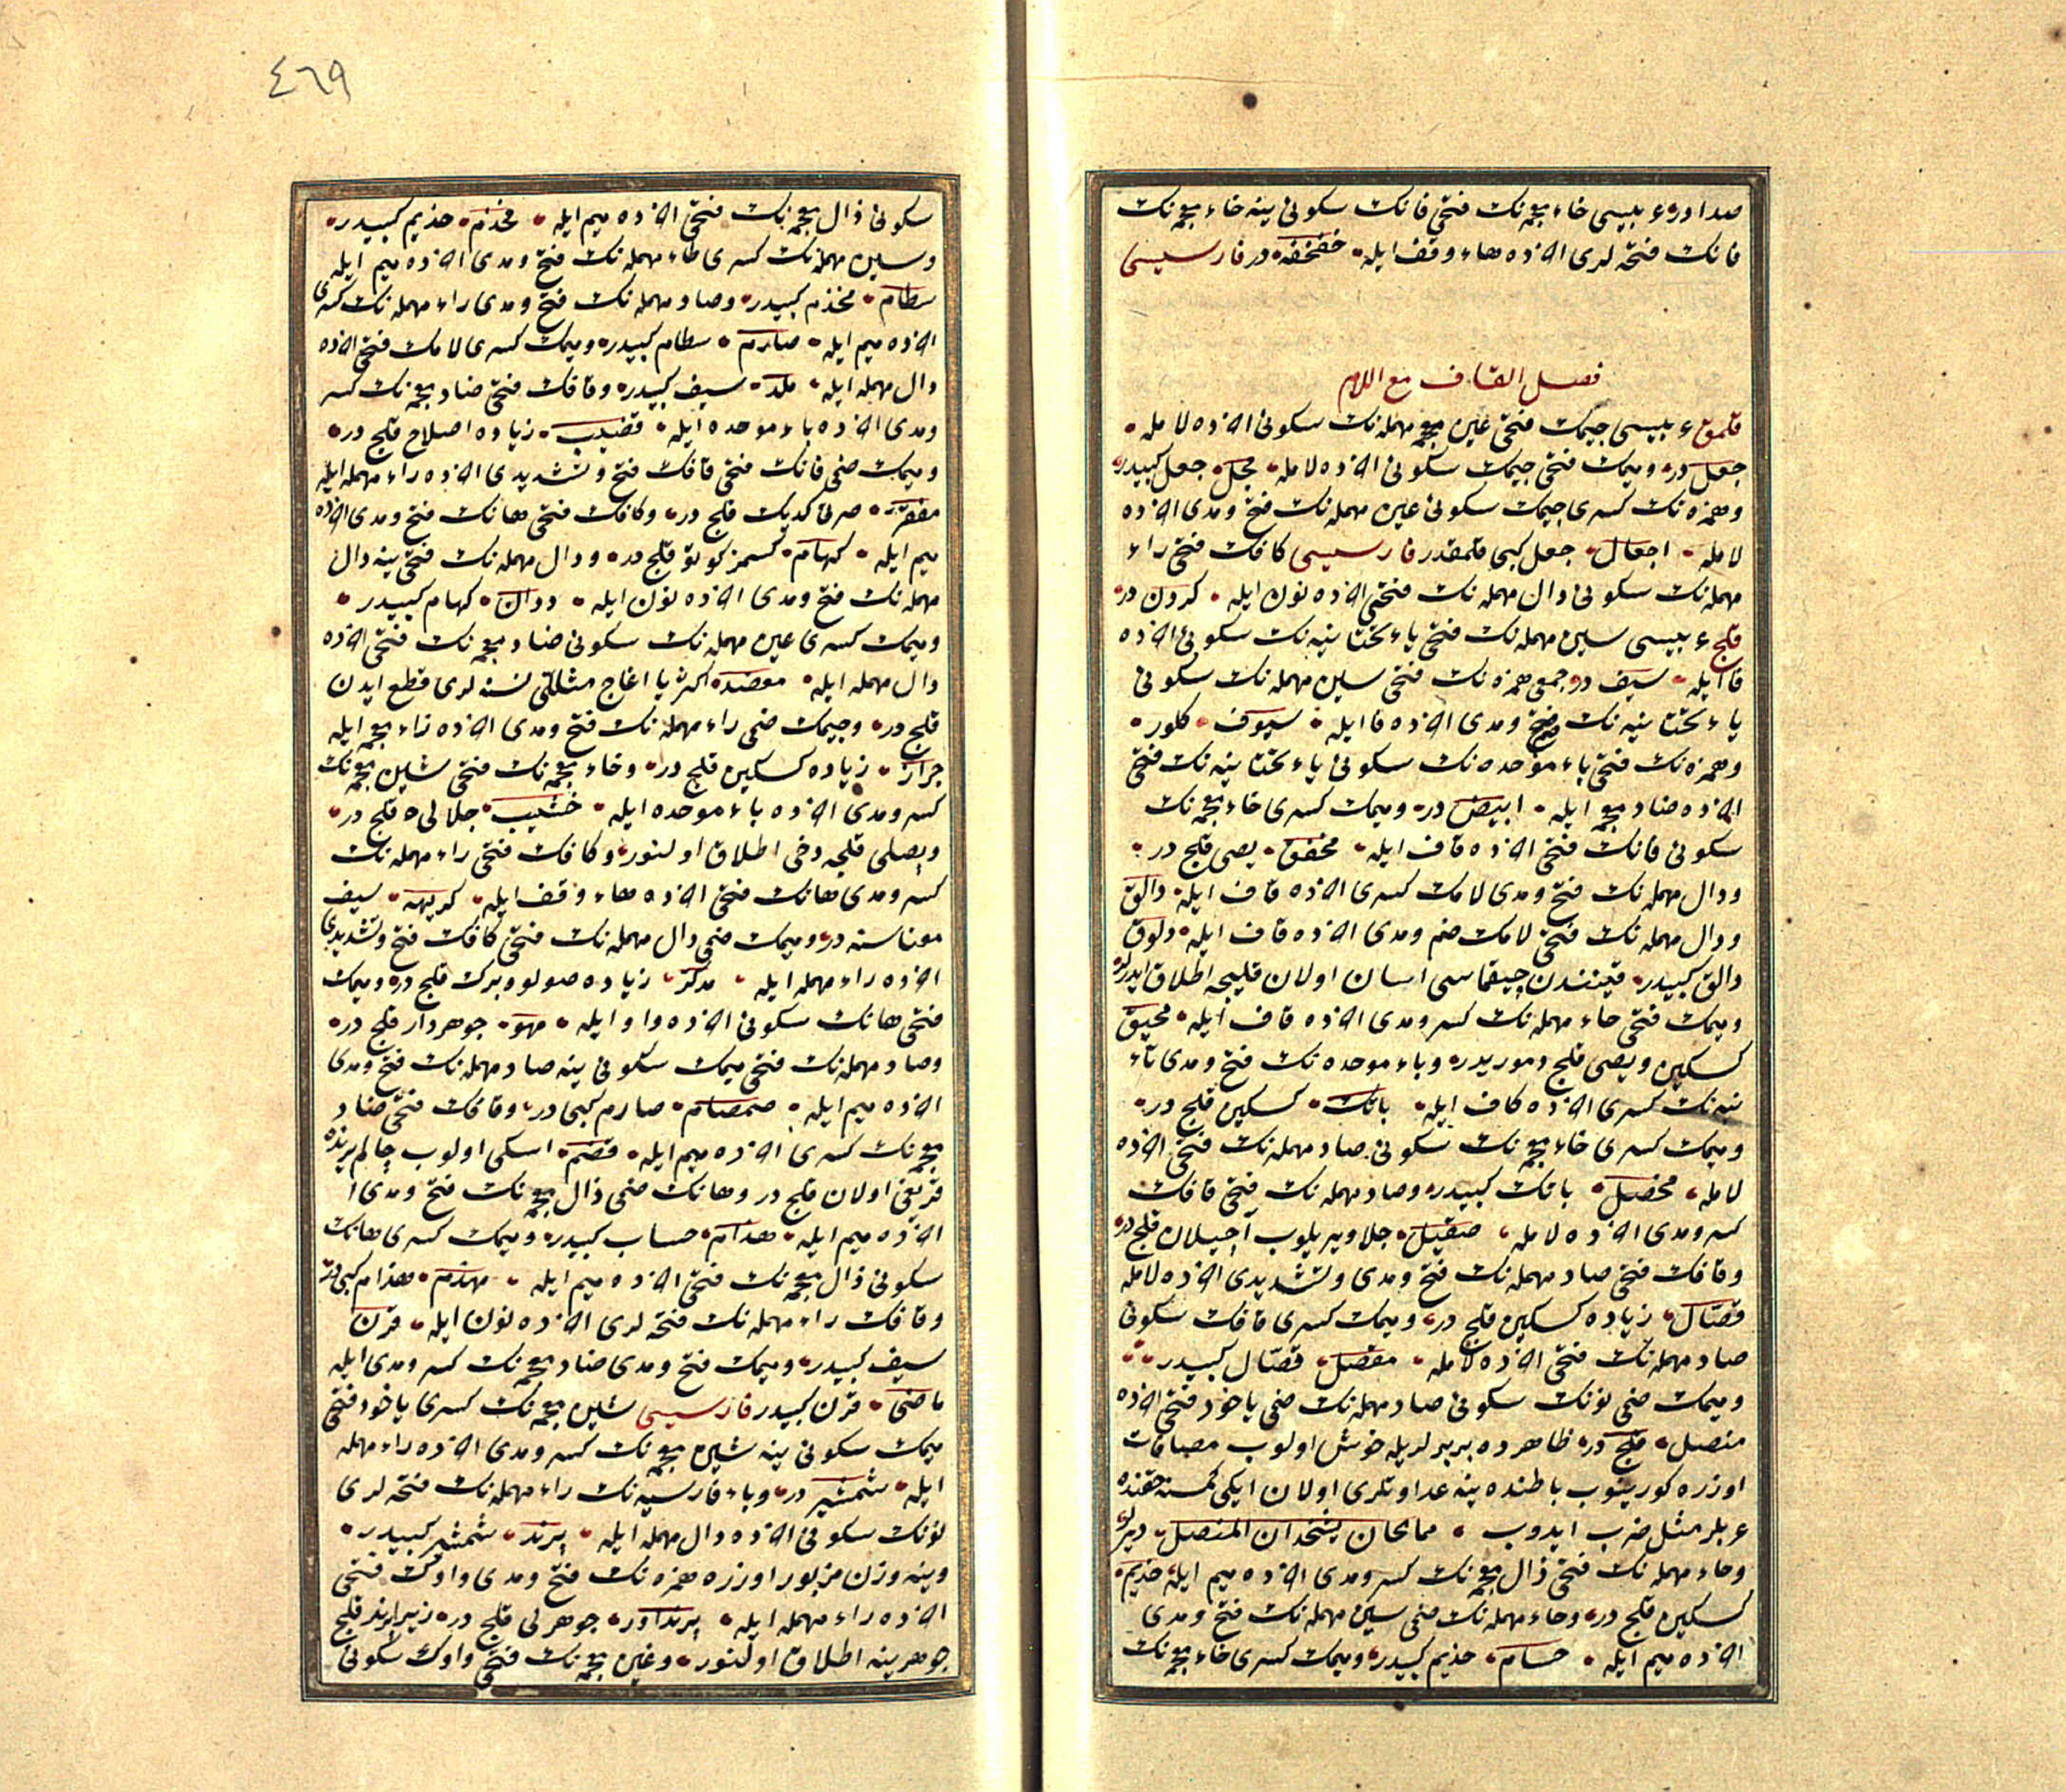 صدادر عربیسی خاء معجمه‌نك فتحی فانك سكونی ینه خاء معجمه‌نك
فانك فتحه‌لری اخرده هاء وقف ایله خفخفه در فارسیسی
فصل القاف مع اللام
قلمق عربیسی جیمك فتحی عین مهمله‌نك سكونی اخرده لامله
جعل در ومیمك فتحی جیمك سكونی اخرده لامله مجل جعل كبیدر
وهمزه‌نك كسری جیمك سكونی عین مهمله‌نك فتح ومدی اخرده
لامله اجعال جعل كبی قلمقدر فارسیسی كافك فتحی راء
مهمله‌نك سكونی دال مهمله‌نك فتحی اخرده نون ایله كردن در
قلج عربیسی سین مهمله‌نك فتحی یاء تحتانیه‌نك سكونی اخرده
فا ایله سیف در جمعی همزه‌نك فتحی سین مهمله‌نك سكونی
یاء تحتانیه‌نك ضم ومدی اخرده فا ایله سیوف كلور
وهمزه‌نك فتحی باء موحده‌نك سكونی یاء تحتانیه‌نك فتحی
اخرده ضاد معجمه ایله ابیض در ومیمك كسری خاء معجمه‌نك
سكونی فانك فتحی اخرده قاف ایله مخفق یصی قلج در
ودال مهمله‌نك فتح ومدی لامك كسری اخرده قاف ایله دالق
ودال مهمله‌نك فتحی لامك ضم ومدی اخرده قاف ایله دلوق
دالق كبیدر قینندن چیقماسی اسان اولان قلیجه اطلاق ایدرلر
ومیمك فتحی حاء مهمله‌نك كسر ومدی اخرده قاف ایله محیق
كسكین ویصی قلج دموریدر وباء موحده‌نك فتح ومدی تاء
ـنیه‌نك كسری اخرده كاف ایله باتك كسكین قلج در
ومیمك كسری خاء معجمه‌نك سكونی صاد مهمله‌نك فتحی اخرده
لامله مخصل باتك كبیدر وصاد مهمله‌نك فتحی قافك
كسر ومدی اخرده لامله صقیل جلا ویریلوب اچیلان قلج در
وقافك فتحی صاد مهمله‌نك فتح ومدی وتشدیدی اخرده لامله
قصّال زیاده كسكین قلج در ومیمك كسری قافك سكونی
صاد مهمله‌نك فتحی اخرده لامله مقصل قصّال كبیدر
ومیمك ضمی نونك سكونی صاد مهمله‌نك ضمی یاخود فتحی اخرده
منصل قلج در ظاهرده بربرلریله خوش اولوب مصافات
اوزره كورینوب باطنده ینه عداوتلری اولان ایكی كمسنه حقنده
عربلر مثل ضرب ایدوب مما‌لحان یشحذان المنصل دیرلر
وحاء مهمله‌نك فتحی ذال معجمه‌نك كسر ومدی اخرده میم ایله حذیم
كسكین قلج در وحاء مهمله‌نك ضمی سین مهمله‌نك فتح ومدی
اخرده میم ایله حسام حذیم كبیدر ومیمك كسری خاء معجمه‌نك
٤٦٩
سكونی ذال معجمه‌نك فتحی اخرده میم ایله مخذم حذیم كبیدر
وسین مهمله‌نك كسری طاء مهمله‌نك فتح ومدی اخرده میم ایله
سطام مخذم كبیدر وصاد مهمله‌نك فتح ومدی راء مهمله‌نك كسری
اخرده میم ایله صارم سطام كبیدر ومیمك كسری لامك فتحی اخرده
دال مهمله ایله ملد سیف كبیدر وقافك فتحی ضاد معجمه‌نك كسر
ومدی اخرده باء موحده ایله قضیب زیاده اصلاح قلج در
ومیمك ضمی فانك فتحی قافك فتح وتشدیدی اخرده راء مهمله ایله
مفقّر صرتی كدیك قلج در وكافك فتحی هانك فتح ومدی اخرده
میم ایله كهام كسمز كوتو قلج در ودال مهمله‌نك فتحی ینه دال
مهمله‌نك فتح ومدی اخرده نون ایله ددان كهام كبیدر
ومیمك كسری عین مهمله‌نك سكونی ضاد معجمه‌نك فتحی اخرده
دال مهمله ایله معضد اكثریا اغاج مثللی نسنه‌لری قطع ایدن
قلج در وجیمك ضمی راء مهمله‌نك فتح ومدی اخرده زاء معجمه ایله
جراز زیاده كسكین قلج در وخاء معجمه‌نك فتحی شین معجمه‌نك
كسر ومدی اخرده باء موحده ایله خشیب جلالی قلج در
ویصلی قلجه دخی اطلاق اولنور وكافك فتحی راء مهمله‌نك
كسر ومدی هانك فتحی اخرده هاء وقف ایله كریهه سیف
معناسنه در ومیمك ضمی دال مهمله‌نك فتحی كافك فتح وتشدیدی
اخرده راء مهمله ایله مدكّر زیاده صولو وبرك قلج در ومیمك
فتحی هانك سكونی اخرده واو ایله مهو جوهردار قلج در
وصاد مهمله‌نك فتحی میمك سكونی ینه صاد مهمله‌نك فتح ومدی
اخرده میم ایله صمصام صارم كبی در وقافك فتحی ضاد
معجمه‌نك كسری اخرده میم ایله قضم اسكی اولوب چالم یرنده
قریغی اولان قلج در وهانك ضمی ذال معجمه‌نك فتح ومدی
اخرده میم ایله هذام حسام كبیدر ومیمك كسری هانك
سكونی ذال معجمه‌نك فتحی اخرده میم ایله مهذم هذام كبی در
وقافك راء مهمله‌نك فتحه‌لری اخرده نون ایله قرن
سیف كبیدر ومیمك فتح ومدی ضاد معجمه‌نك كسر ومدی ایله
ماضی قرن كبیدر فارسیسی شین معجمه‌نك كسری یاخود فتحی
میمك سكونی ینه شین معجمه‌نك كسر ومدی اخرده راء مهمله
ایله شمشیر در وباء فارسیه‌نك راء مهمله‌نك فتحه‌لری
نونك سكونی اخرده دال مهمله ایله پرند شمشیر كبیدر
وینه وزن مزبور اوزره همزه‌نك فتح ومدی واوك فتحی
اخرده راء مهمله ایله پرنداور جوهرلی قلج در زیرا پرند قلج
جوهرینه اطلاق اولنور وغین معجمه‌نك فتحی واوك سكونی